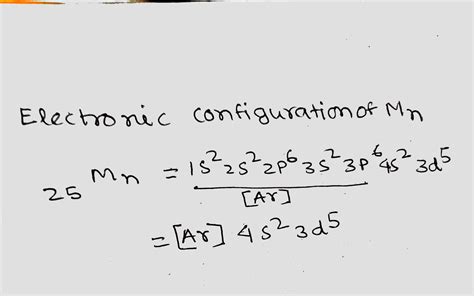 Electronic configuration of Mn
₂₅Mn = 1s² 2s² 2p⁶ 3s² 3p⁶ 4s² 3d⁵
[Ar]
= [Ar] 4s² 3d⁵